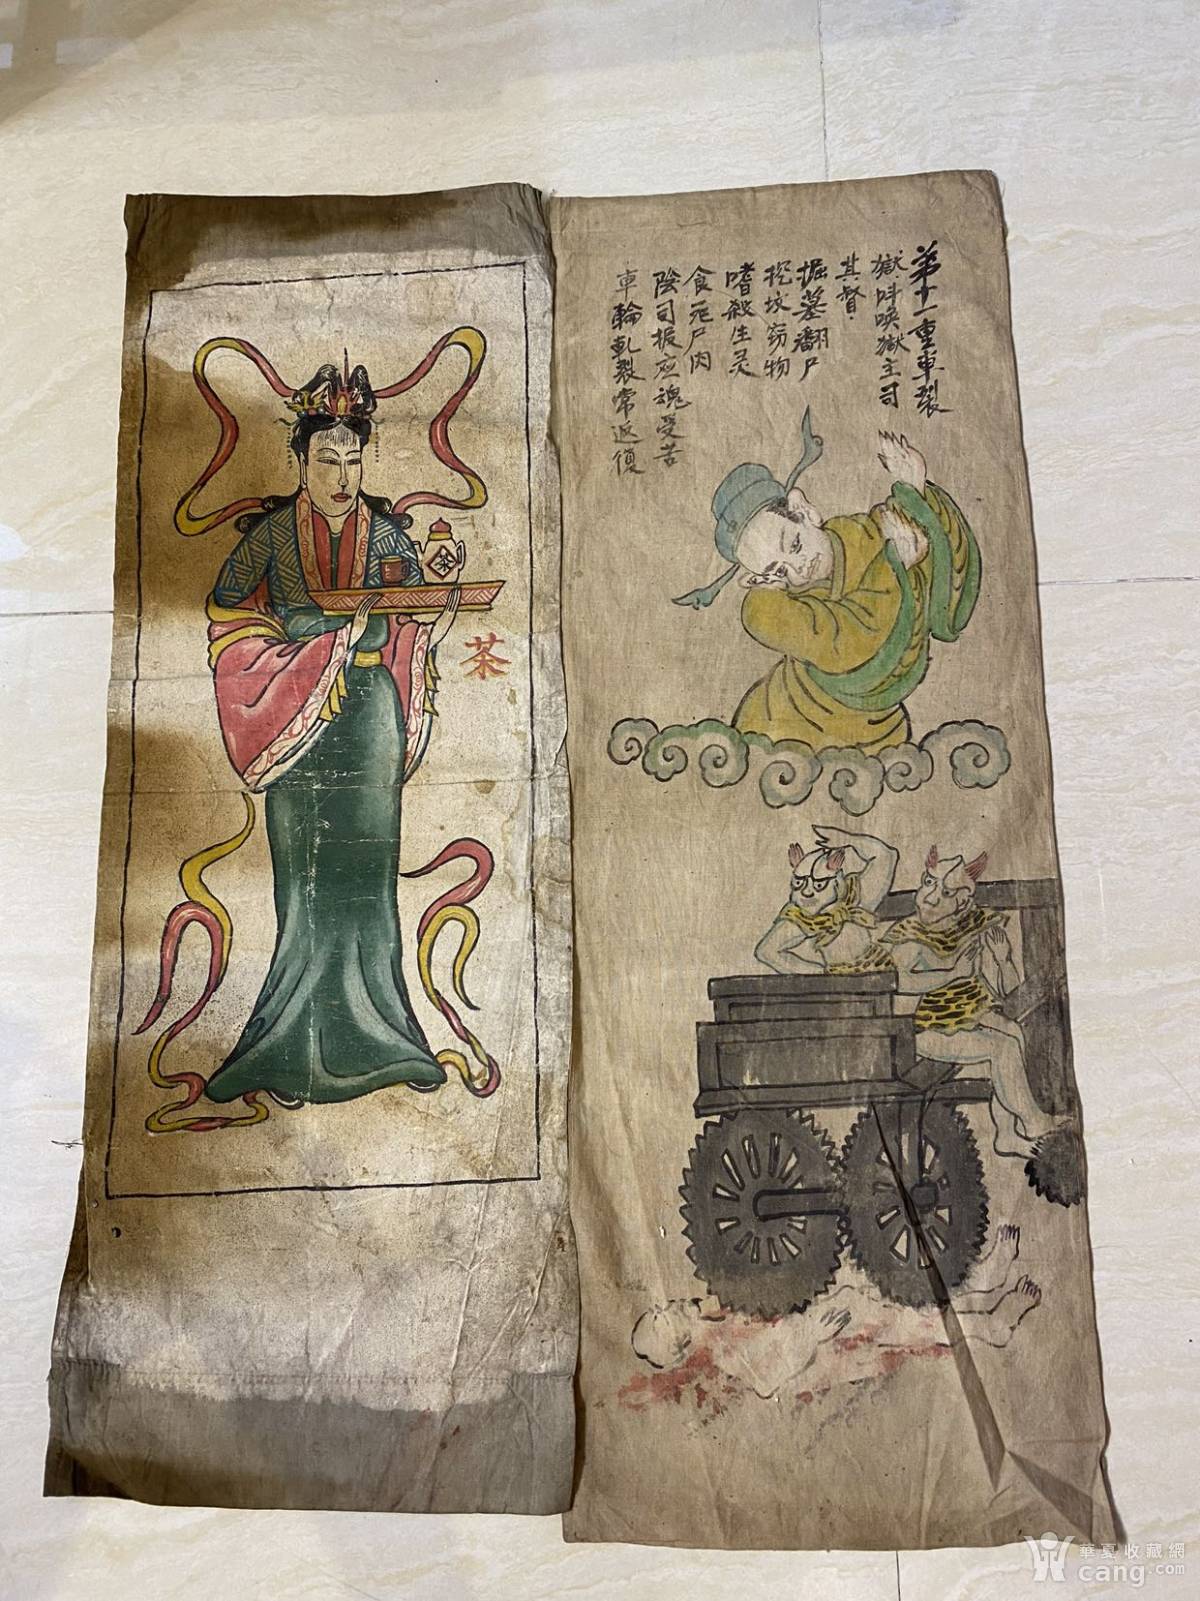 茶
茶
第十一重車裂
獄叫喚獄主司
其督
掘墓翻尸
挖坟窃物
嗜殺生灵
食死尸肉
陰司报应魂受苦
車輪軋裂常返復
華夏收藏網
cang.com